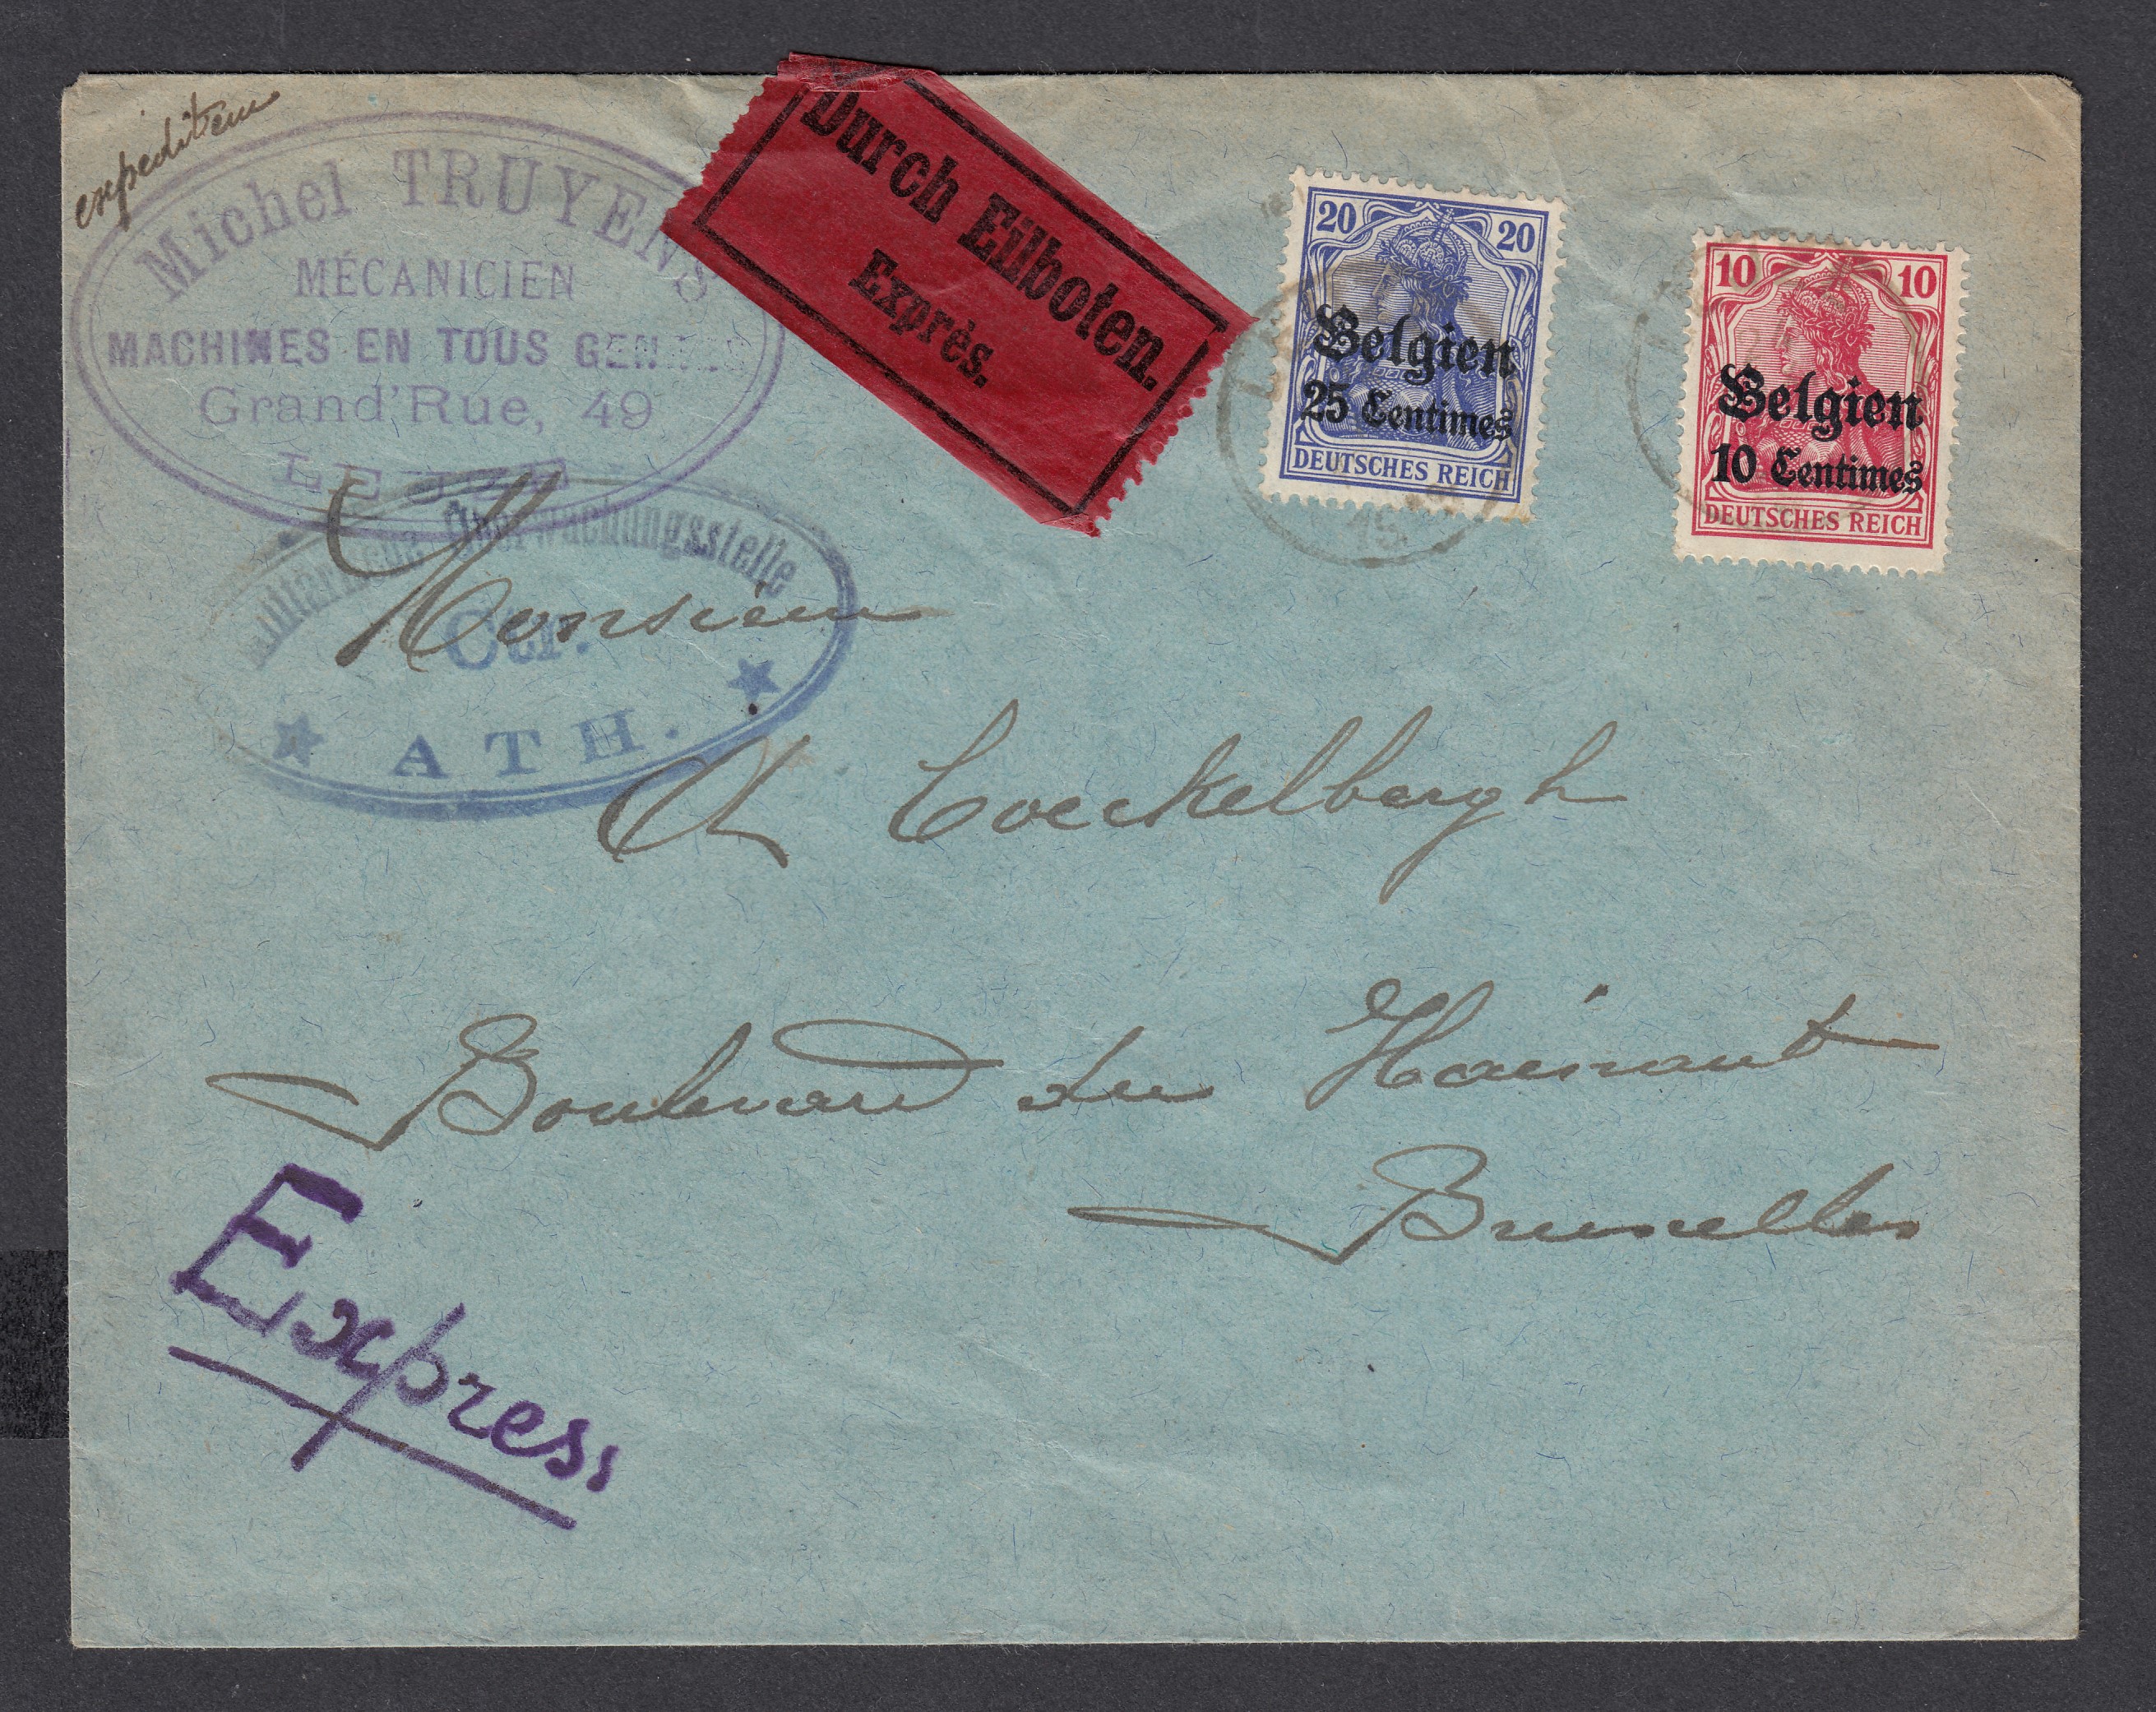 expediteur
Michel TRUYENS
MÉCANICIEN
MACHINES EN TOUS GENRES
Grand'Rue, 49
LEUZE
Durch Eilboten.
Exprès.
20 20
Belgien
25 Centimes
DEUTSCHES REICH
15
10 10
Belgien
10 Centimes
DEUTSCHES REICH
Militärische Überwachungsstelle
Ctr.
★ ATH. ★
Monsieur
Coeckelbergh
Boulevard du Hainaut
Bruxelles
Express